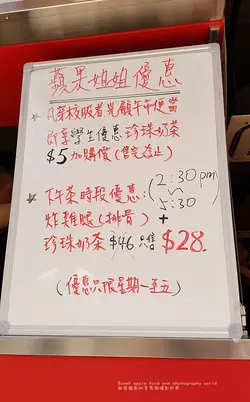 蘋果姐姐優惠
凡穿校服者光顧午市便當
即享學生優惠 珍珠奶茶
$5加購價(售完為止)
下午茶時段優惠:(2:30pm
5:30)
炸雞腿(排骨) +
珍珠奶茶 $46 只售 $28.
(優惠只限星期一至五)
Sweet apple food and photography world